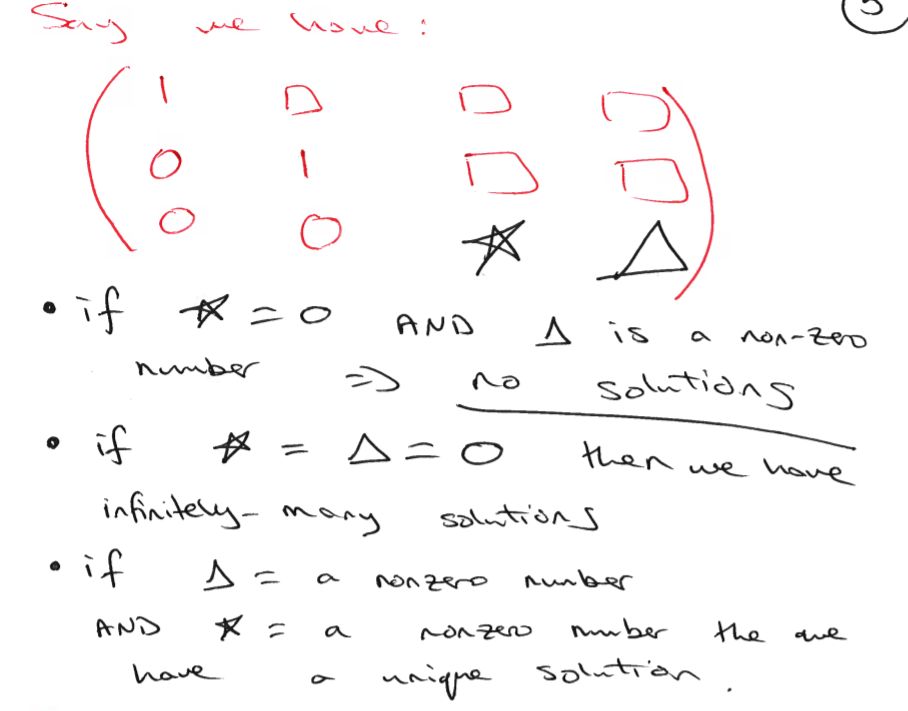 Say we have:
3
1 □ □ □
0 1 □ □
0 0 ☆ △
• if ☆ = 0 AND △ is a non-zero
number => no solutions
• if ☆ = △ = 0 then we have
infinitely-many solutions
• if △ = a nonzero number
AND ☆ = a nonzero number the we
have a unique solution.